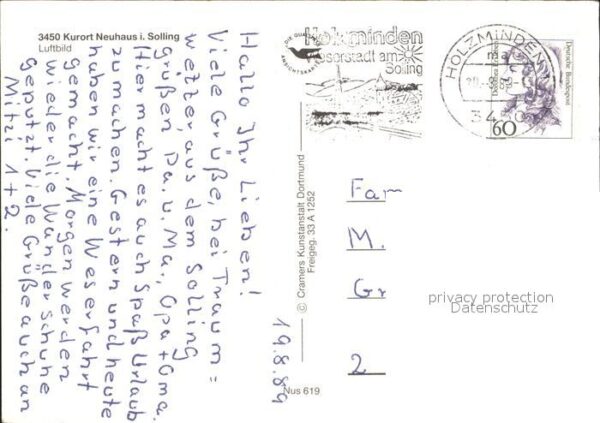 3450 Kurort Neuhaus i. Solling
Luftbild
Hallo Ihr Lieben!
Viele Grüße, bei Traum=
wetter, aus dem Solling
grüßen Pa. u. Ma., Opa + Oma.
Hier macht es auch Spaß Urlaub
zu machen. Gestern und heute
haben wir eine Weserfahrt
gemacht. Morgen werden
wieder die Wanderschuhe
geputzt. Viele Grüße auch an
Mitzi 1+2.
19.8.89
© Cramers Kunstanstalt Dortmund
Freigeg. 33 A 1252
Nus 619
DIE
ANSICHTSKARTE
Holzminden
Weserstadt am
Solling
HOLZMINDEN
60
Deutsche Bundespost
Fam
M.
Gr
2
privacy protection
Datenschutz